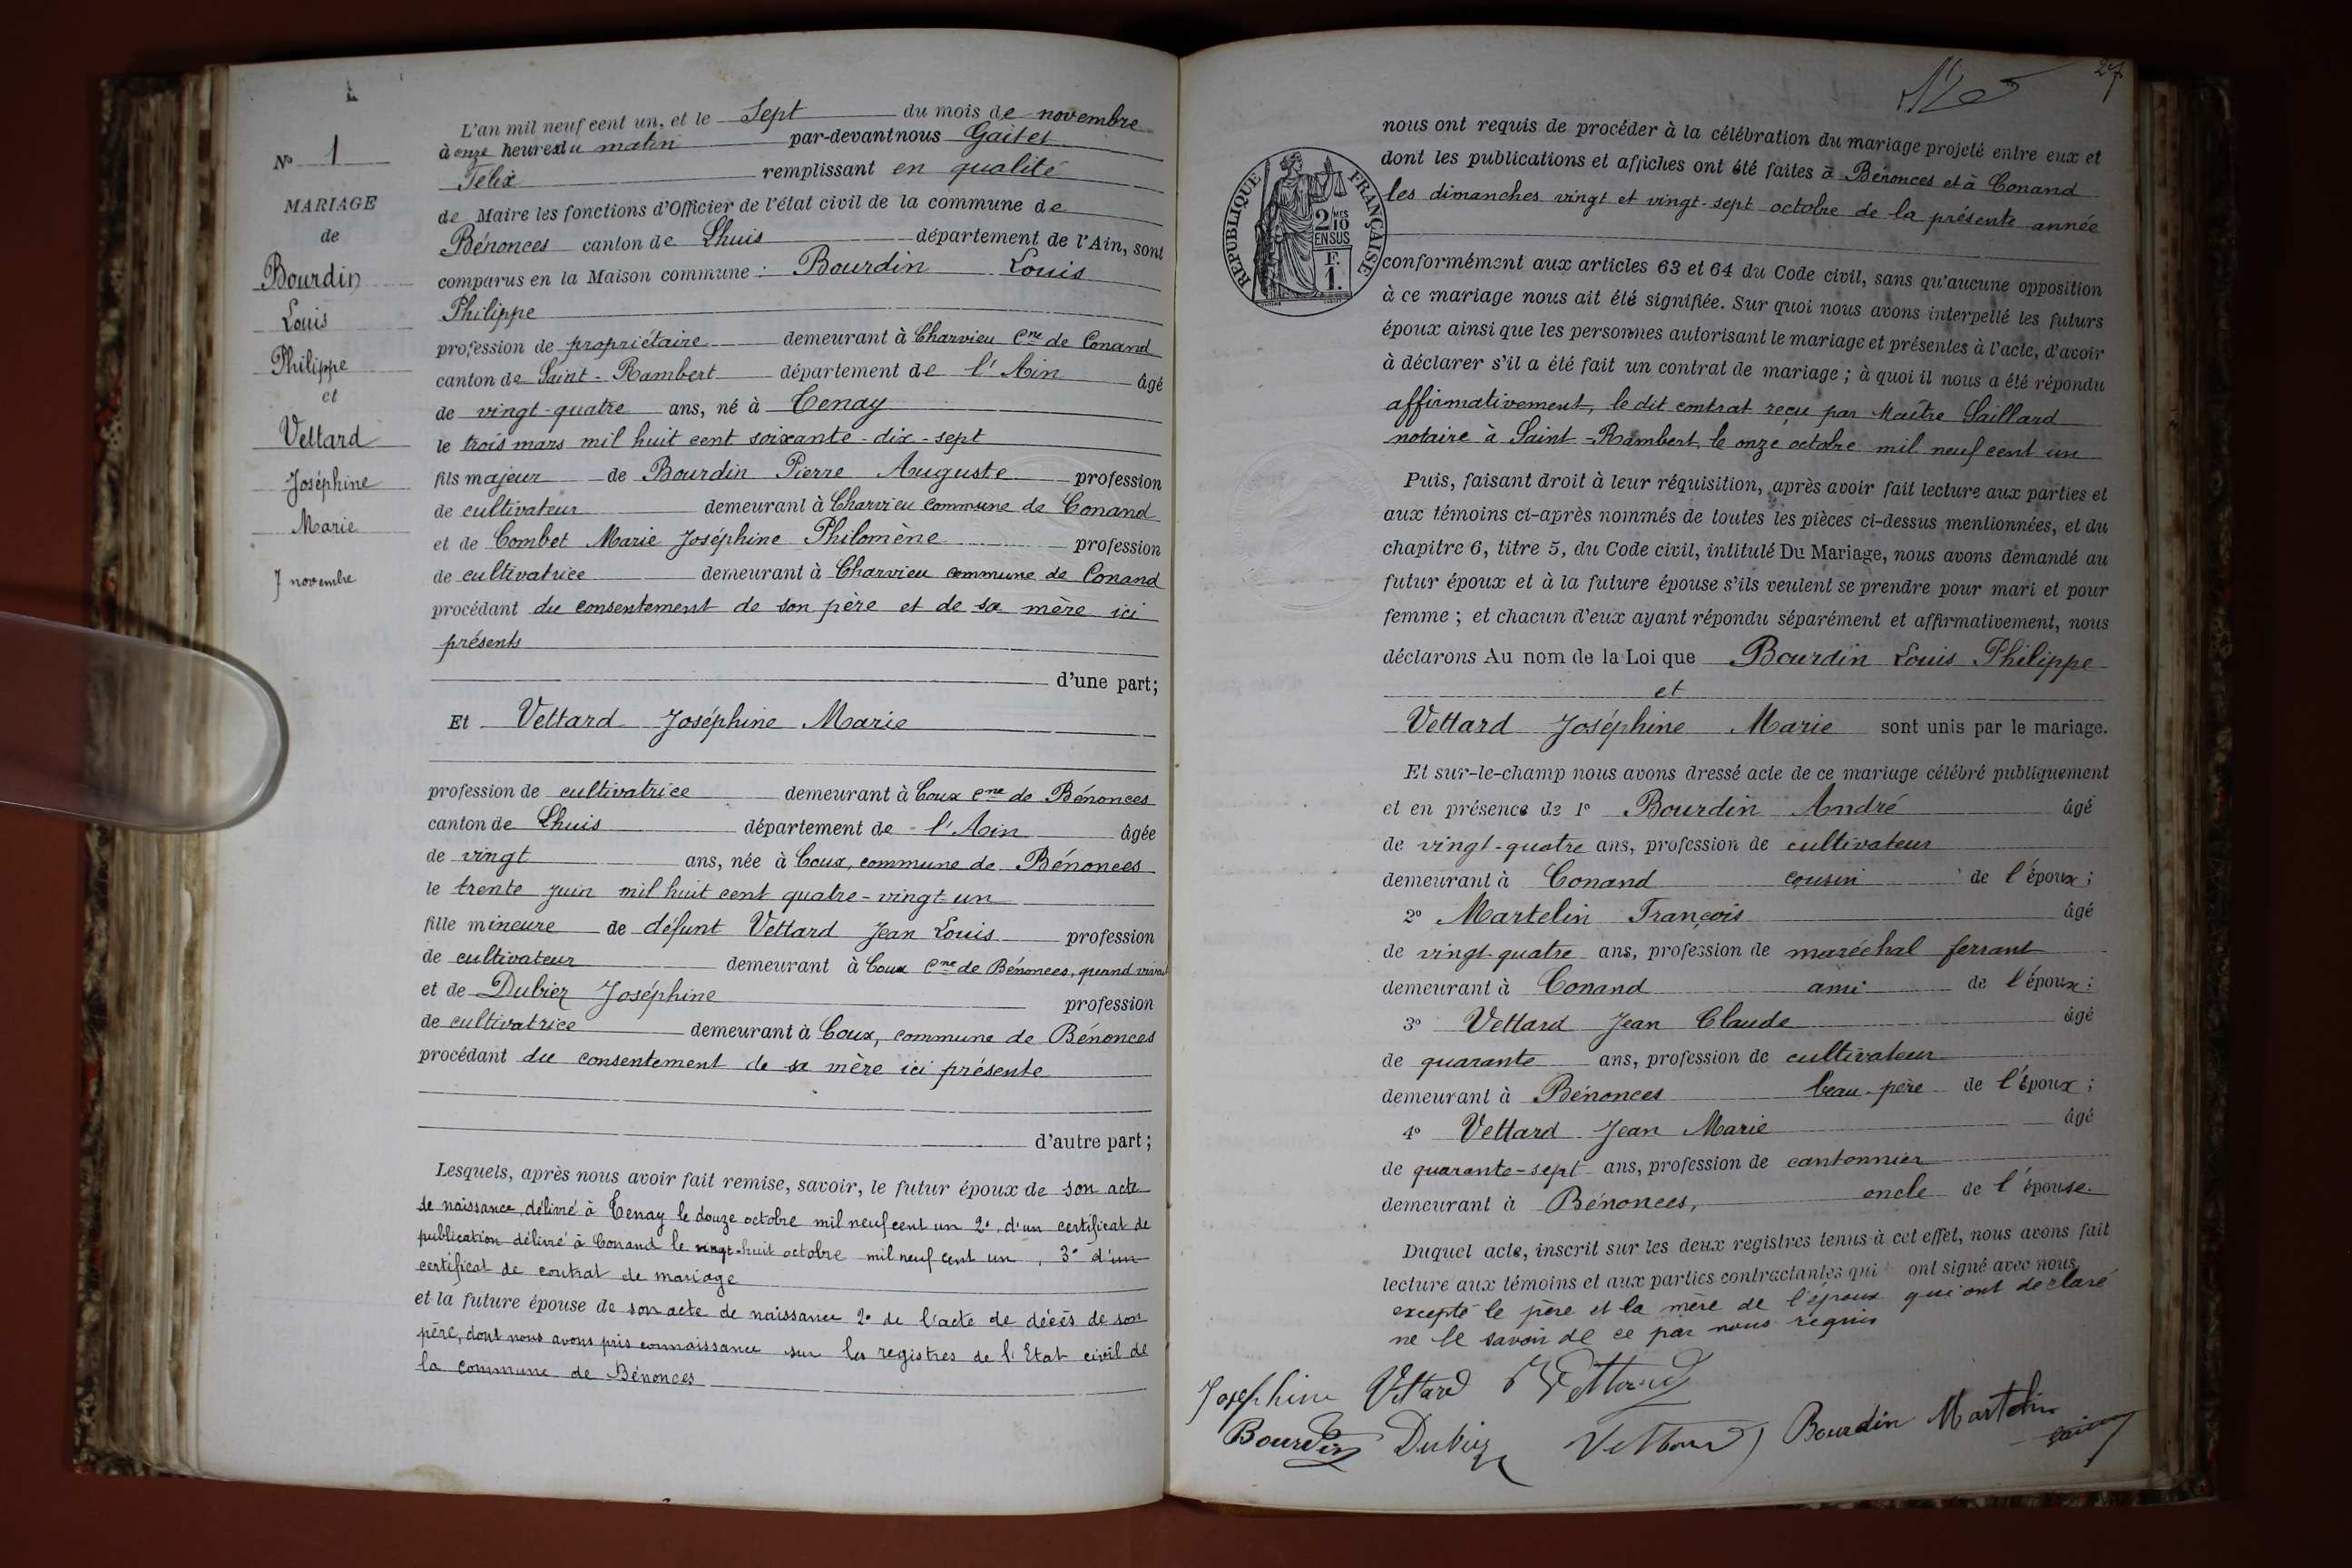 N° 1
MARIAGE
de
Bourdin
Louis
Philippe
et
Vettard
Joséphine
Marie
7 novembre
L'an mil neuf cent un, et le Sept du mois de novembre
à onze heures du matin par-devant nous Gaitet
Félix remplissant en qualité
de Maire les fonctions d'Officier de l'état civil de la commune de
Bénonces canton de Lhuis département de l'Ain, sont
comparus en la Maison commune : Bourdin Louis
Philippe
profession de propriétaire demeurant à Charvieu Cne de Conand
canton de Saint-Rambert département de l'Ain âgé
de vingt-quatre ans, né à Tenay
le trois mars mil huit cent soixante-dix-sept
fils majeur de Bourdin Pierre Auguste profession
de cultivateur demeurant à Charvieu commune de Conand
et de Combet Marie Joséphine Philomène profession
de cultivatrice demeurant à Charvieu commune de Conand
procédant du consentement de son père et de sa mère ici
présents
d'une part;
Et Vettard Joséphine Marie
profession de cultivatrice demeurant à Coux Cne de Bénonces
canton de Lhuis département de l'Ain âgée
de vingt ans, née à Coux, commune de Bénonces
le trente juin mil huit cent quatre-vingt-un
fille mineure de défunt Vettard Jean Louis profession
de cultivateur demeurant à Coux Cne de Bénonces, quand vivait
et de Dubiez Joséphine profession
de cultivatrice demeurant à Coux, commune de Bénonces
procédant du consentement de sa mère ici présente
d'autre part;
Lesquels, après nous avoir fait remise, savoir, le futur époux de son acte
de naissance, délivré à Tenay le douze octobre mil neuf cent un 2°, d'un certificat de
publication délivré à Conand le vingt-huit octobre mil neuf cent un, 3° d'un
certificat de contrat de mariage
et la future épouse de son acte de naissance 2° de l'acte de décès de son
père, dont nous avons pris connaissance sur les registres de l'Etat civil de
la commune de Bénonces
27
RÉPUBLIQUE FRANÇAISE
2/10 MES
EN SUS
F.
1.
nous ont requis de procéder à la célébration du mariage projeté entre eux et
dont les publications et affiches ont été faites à Bénonces et à Conand
les dimanches vingt et vingt-sept octobre de la présente année
conformément aux articles 63 et 64 du Code civil, sans qu'aucune opposition
à ce mariage nous ait été signifiée. Sur quoi nous avons interpellé les futurs
époux ainsi que les personnes autorisant le mariage et présentes à l'acte, d'avoir
à déclarer s'il a été fait un contrat de mariage ; à quoi il nous a été répondu
affirmativement, le dit contrat reçu par Maître Saillard
notaire à Saint-Rambert, le onze octobre mil neuf cent un
Puis, faisant droit à leur réquisition, après avoir fait lecture aux parties et
aux témoins ci-après nommés de toutes les pièces ci-dessus mentionnées, et du
chapitre 6, titre 5, du Code civil, intitulé Du Mariage, nous avons demandé au
futur époux et à la future épouse s'ils veulent se prendre pour mari et pour
femme ; et chacun d'eux ayant répondu séparément et affirmativement, nous
déclarons Au nom de la Loi que Bourdin Louis Philippe
et
Vettard Joséphine Marie sont unis par le mariage.
Et sur-le-champ nous avons dressé acte de ce mariage célébré publiquement
et en présence de 1° Bourdin André âgé
de vingt-quatre ans, profession de cultivateur
demeurant à Conand cousin de l'époux ;
2° Martelin François âgé
de vingt-quatre ans, profession de maréchal ferrant
demeurant à Conand ami de l'époux ;
3° Vettard Jean Claude âgé
de quarante ans, profession de cultivateur
demeurant à Bénonces beau-père de l'époux ;
4° Vettard Jean Marie âgé
de quarante-sept ans, profession de cantonnier
demeurant à Bénonces, oncle de l'épouse.
Duquel acte, inscrit sur les deux registres tenus à cet effet, nous avons fait
lecture aux témoins et aux parties contractantes qui ont signé avec nous
excepté le père et la mère de l'époux qui ont déclaré
ne le savoir de ce par nous requis
Josephine Vettard Vettard
Bourdin Dubiez Vettard Bourdin Martelin